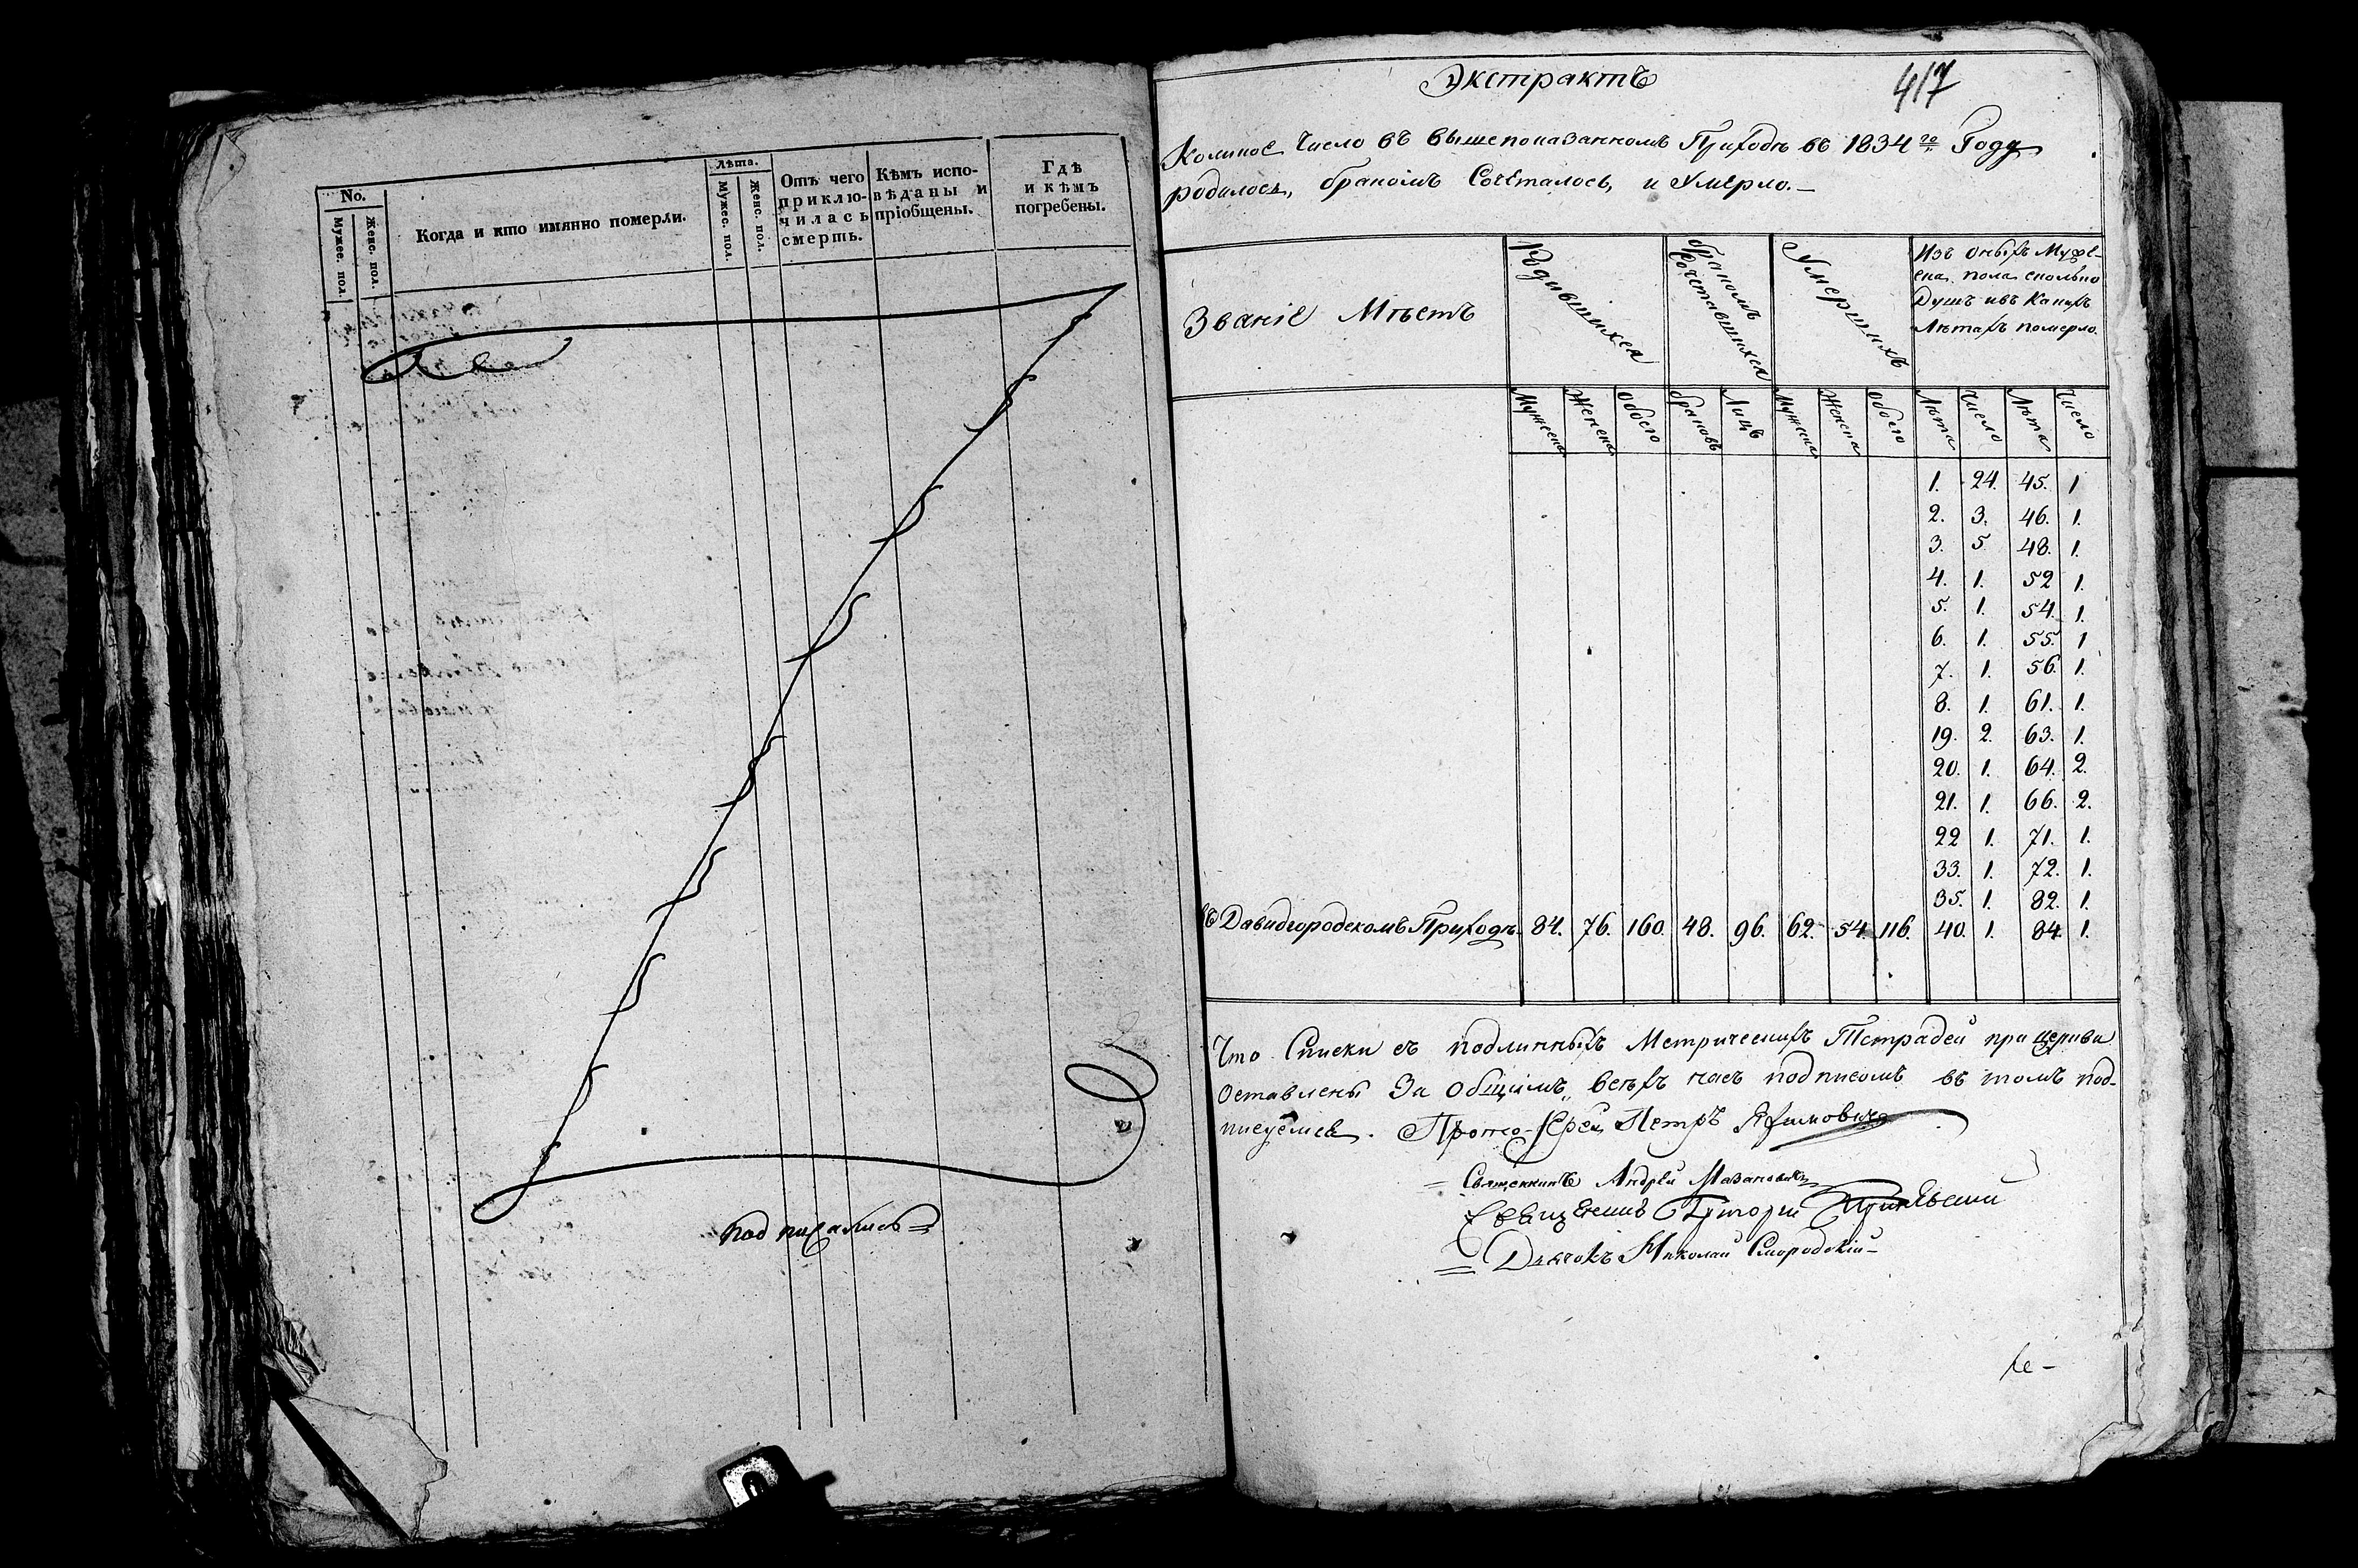 No.
Мужес. пол.
Женс. пол.
Когда и кто имянно померли.
Лѣта.
Мужес. пол.
Женс. пол.
Отъ чего
приклю-
чилась
смерть.
Кѣмъ испо-
вѣданы и
пріобщены.
Гдѣ
и кѣмъ
погребены.
подписались
Экстрактъ
417
Коликое число въ вышепоказанномъ Приходѣ въ 1834го Году
родилось, бракомъ Сочеталось, и Умерло.
Званіе Мѣстъ
Родившихся
бракомъ
Сочетавшихся
Умершихъ
Изъ оныхъ Муже-
ска пола сколько
Душъ ивъ Какихъ
Лѣтахъ померло.
Мужеска
Женска
Обоего
браковъ
Лицъ
Мужеска
Женска
Обоего
Лѣта
Число
Лѣта
Число
1. 24. 45. 1
2. 3. 46. 1.
3. 5 48. 1.
4. 1. 52 1.
5. 1. 54. 1.
6. 1. 55. 1
7. 1. 56. 1.
8. 1. 61. 1.
19. 2. 63. 1.
20. 1. 64. 2.
21. 1. 66. 2.
22 1. 71. 1.
33. 1. 72. 1.
35. 1. 82. 1.
въ Давидгородскомъ Приходѣ. 84. 76. 160. 48. 96. 62. 54. 116. 40. 1. 84. 1.
Что Списки съ подлинныхъ Метрическихъ Тетрадей при церкви
Оставлены За Общимъ всѣхъ насъ подписомъ въ томъ под-
писуемся. Прото-Іерей Петръ Яхимовичъ
Священникъ Андрей Мазановичъ
Священникъ Григорій
Дьячокъ Николай Смородскій